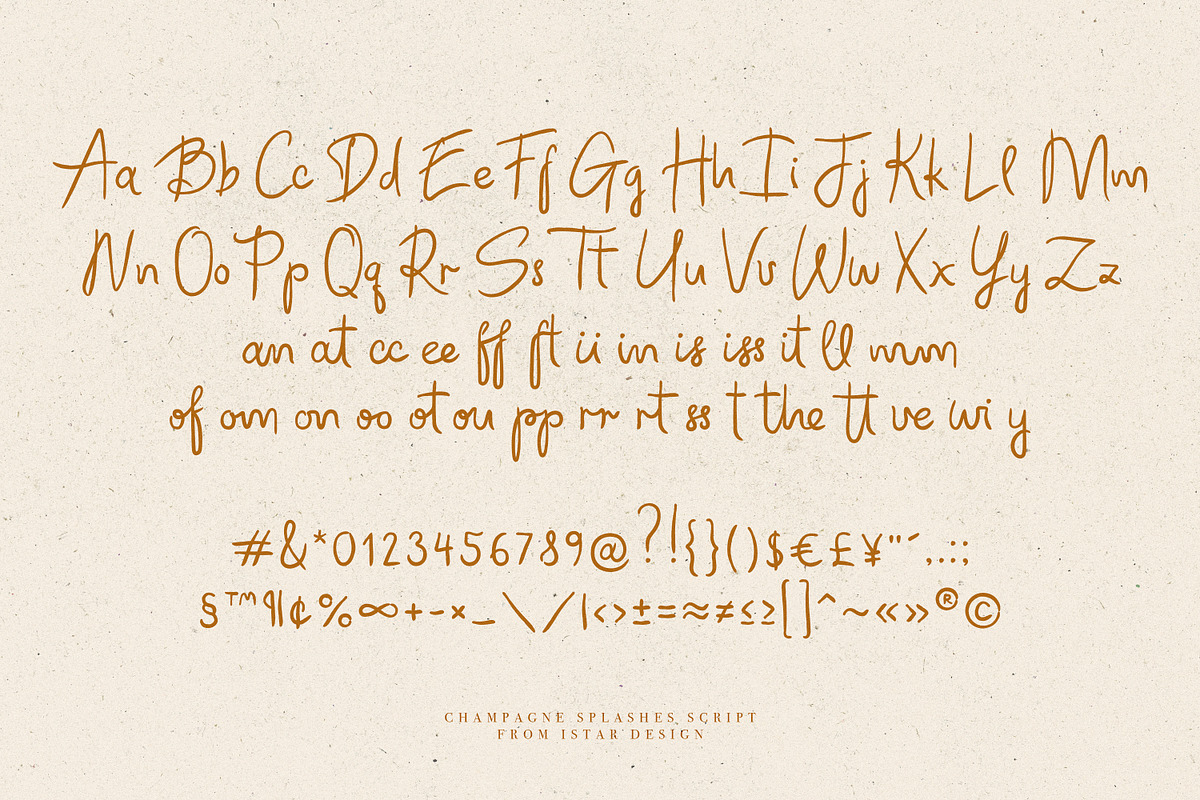 Aa Bb Cc Dd Ee Ff Gg Hh Ii Jj Kk Ll Mm
Nn Oo Pp Qq Rr Ss Tt Uu Vv Ww Xx Yy Zz
an at cc ee ff ft ii in is iss it ll mm
of om on oo ot ou pp rr rt ss t the tt ve wi y
#&*0123456789@?!{}()$€£¥"´,.:;
§™¶¢%∞+-×_\/|<>±=≈≠≤≥[]^~«»®©
CHAMPAGNE SPLASHES SCRIPT
FROM ISTAR DESIGN